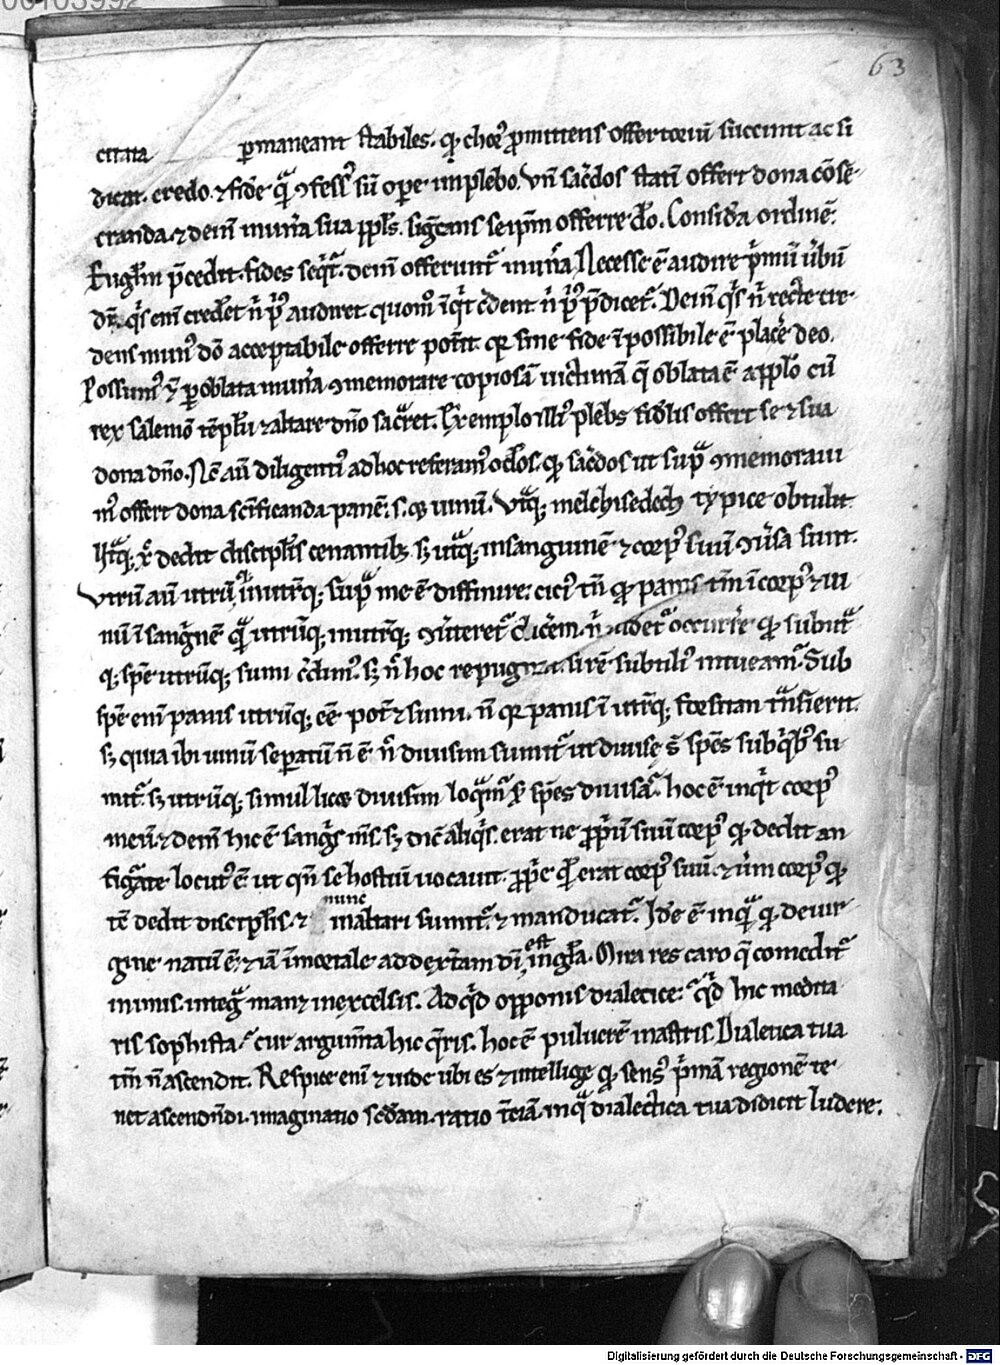 63
ctrina permaneant stabiles. qd chor' ꝓmittens offertoriū succinit ac si
dicat. credo. ⁊ fidē quā ꝯfess' sū oꝑe implebo. Vn̄ sac̄dos statī offert dona cōse
cranda. ⁊ dein̄ mun̄a sua ppl's. sig̅cans seip̄m offerre dō. Consid̄a ordinē.
Euḡliū p̄cedit. fides seq̇t̄. dein̄ offerunt̄ mun̄a. Necesse ē audire ṗmū ūbū
dī. q̇s eni crēdet n̄ ṗ' audiret quom̊ īq̇t c̄dent n̄ ṗ' p̄dicet̄. Dein̄ q̇s n̄ recte cre
dens mun' dō acceptabile offerre pot̄it qr sine fide īpossibile ē plac̄e deo.
Possum' ⁊ ꝑ oblata mun̄a ꝯmemorare copiosā uictimā q̄ oblata ē a pplo cū
rex salemō tēplū ⁊ altare dn̄o sac̄ret. Exemplo illi' plebs fidelis offert se ⁊ sua
dona dn̄o. Nc̄ aū diligenti' ad hoc referam' oc̄los. qd sac̄dos ut sup̄ ꝯmemoraui
m' offert dona sc̄ificanda panē. s. ⁊ uinū. Vt̄q; melchisedech typice obtulit
Vt̄q; x̄ dedit discipl̄is cenantib; s; ut̄q; in sanguinē ⁊ corp' suū ūsa sunt.
Vtrū aū utrū in utr̄q; sup̄ me ē diffinire. cici' tn̄ qd panis tm̄ ī corp' ⁊ ui
nū ī sang̅nē quā utrūq; in utr̄q; ūteret̄ dic̄em. n̄ uidet̄ occurr̄e qd sub ut̄
q; spē utrūq; sumi c̄dim'. s; n̄ hoc repugnat. si rē subtili' intueam̄. Sub
spē eni panis utrūq; eē pot̄ ⁊ sumi. n̄ qr panis ī utr̄q; forsitan tn̄sierit.
s; quia ibi unū separatū n̄ ē n̄ diuisim sumit̄ ut diuise s̄ spēs sub q̇b' su
mit̄. s; utrūq; simul licet diuisim loq̄m̄ ꝓ spēs diuisas. hoc ē inq̇t corp'
meū. ⁊ dein̄ hic ē sang̅s m̄s. s; dic̄ aliq̇s. erat ne ꝓṗū suū corp' qd dedit an
fig̅ate locut' ē ut qn̄ se hostiū uocauit. ꝓṗe qd erat corp' suū. ⁊ uerū corp' qd
tē dedit discipl̄is. ⁊ nunc in altari sumit̄. ⁊ manducat̄. Idē ē inquā qd de uir
gine natū ē. ⁊ iā īmortale ad dext̄am dī est in gl̄a. Mira res caro q̄ comedit̄
in imis. integ̅ manet in excelsis. Ad q̇d opponis dialectice. q̇d hic medita
ris sophista. cur argum̄ta hic q̄ris. hoc ē puluerē in astris. Dialetica tua
tm̄ n̄ ascendit. Respice eni ⁊ uide ubi es ⁊ intellige qd sens' ṗmā regionē te
net ascendn̄di. imaginatio secd̄am. ratio tc̄iā. in quā dialectica tua didicit ludere.
Digitalisierung gefördert durch die Deutsche Forschungsgemeinschaft - DFG